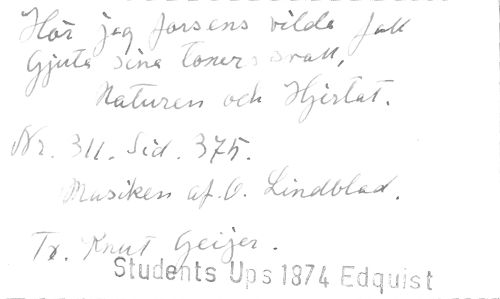 Hör jag forsens vilda fall
Gjuta sina toners svall,
Naturen och Hjertat.
Nr. 311. Sid. 375.
Musiken af O. Lindblad.
Tx. Knut Geijer.
Students Ups 1874 Edquist